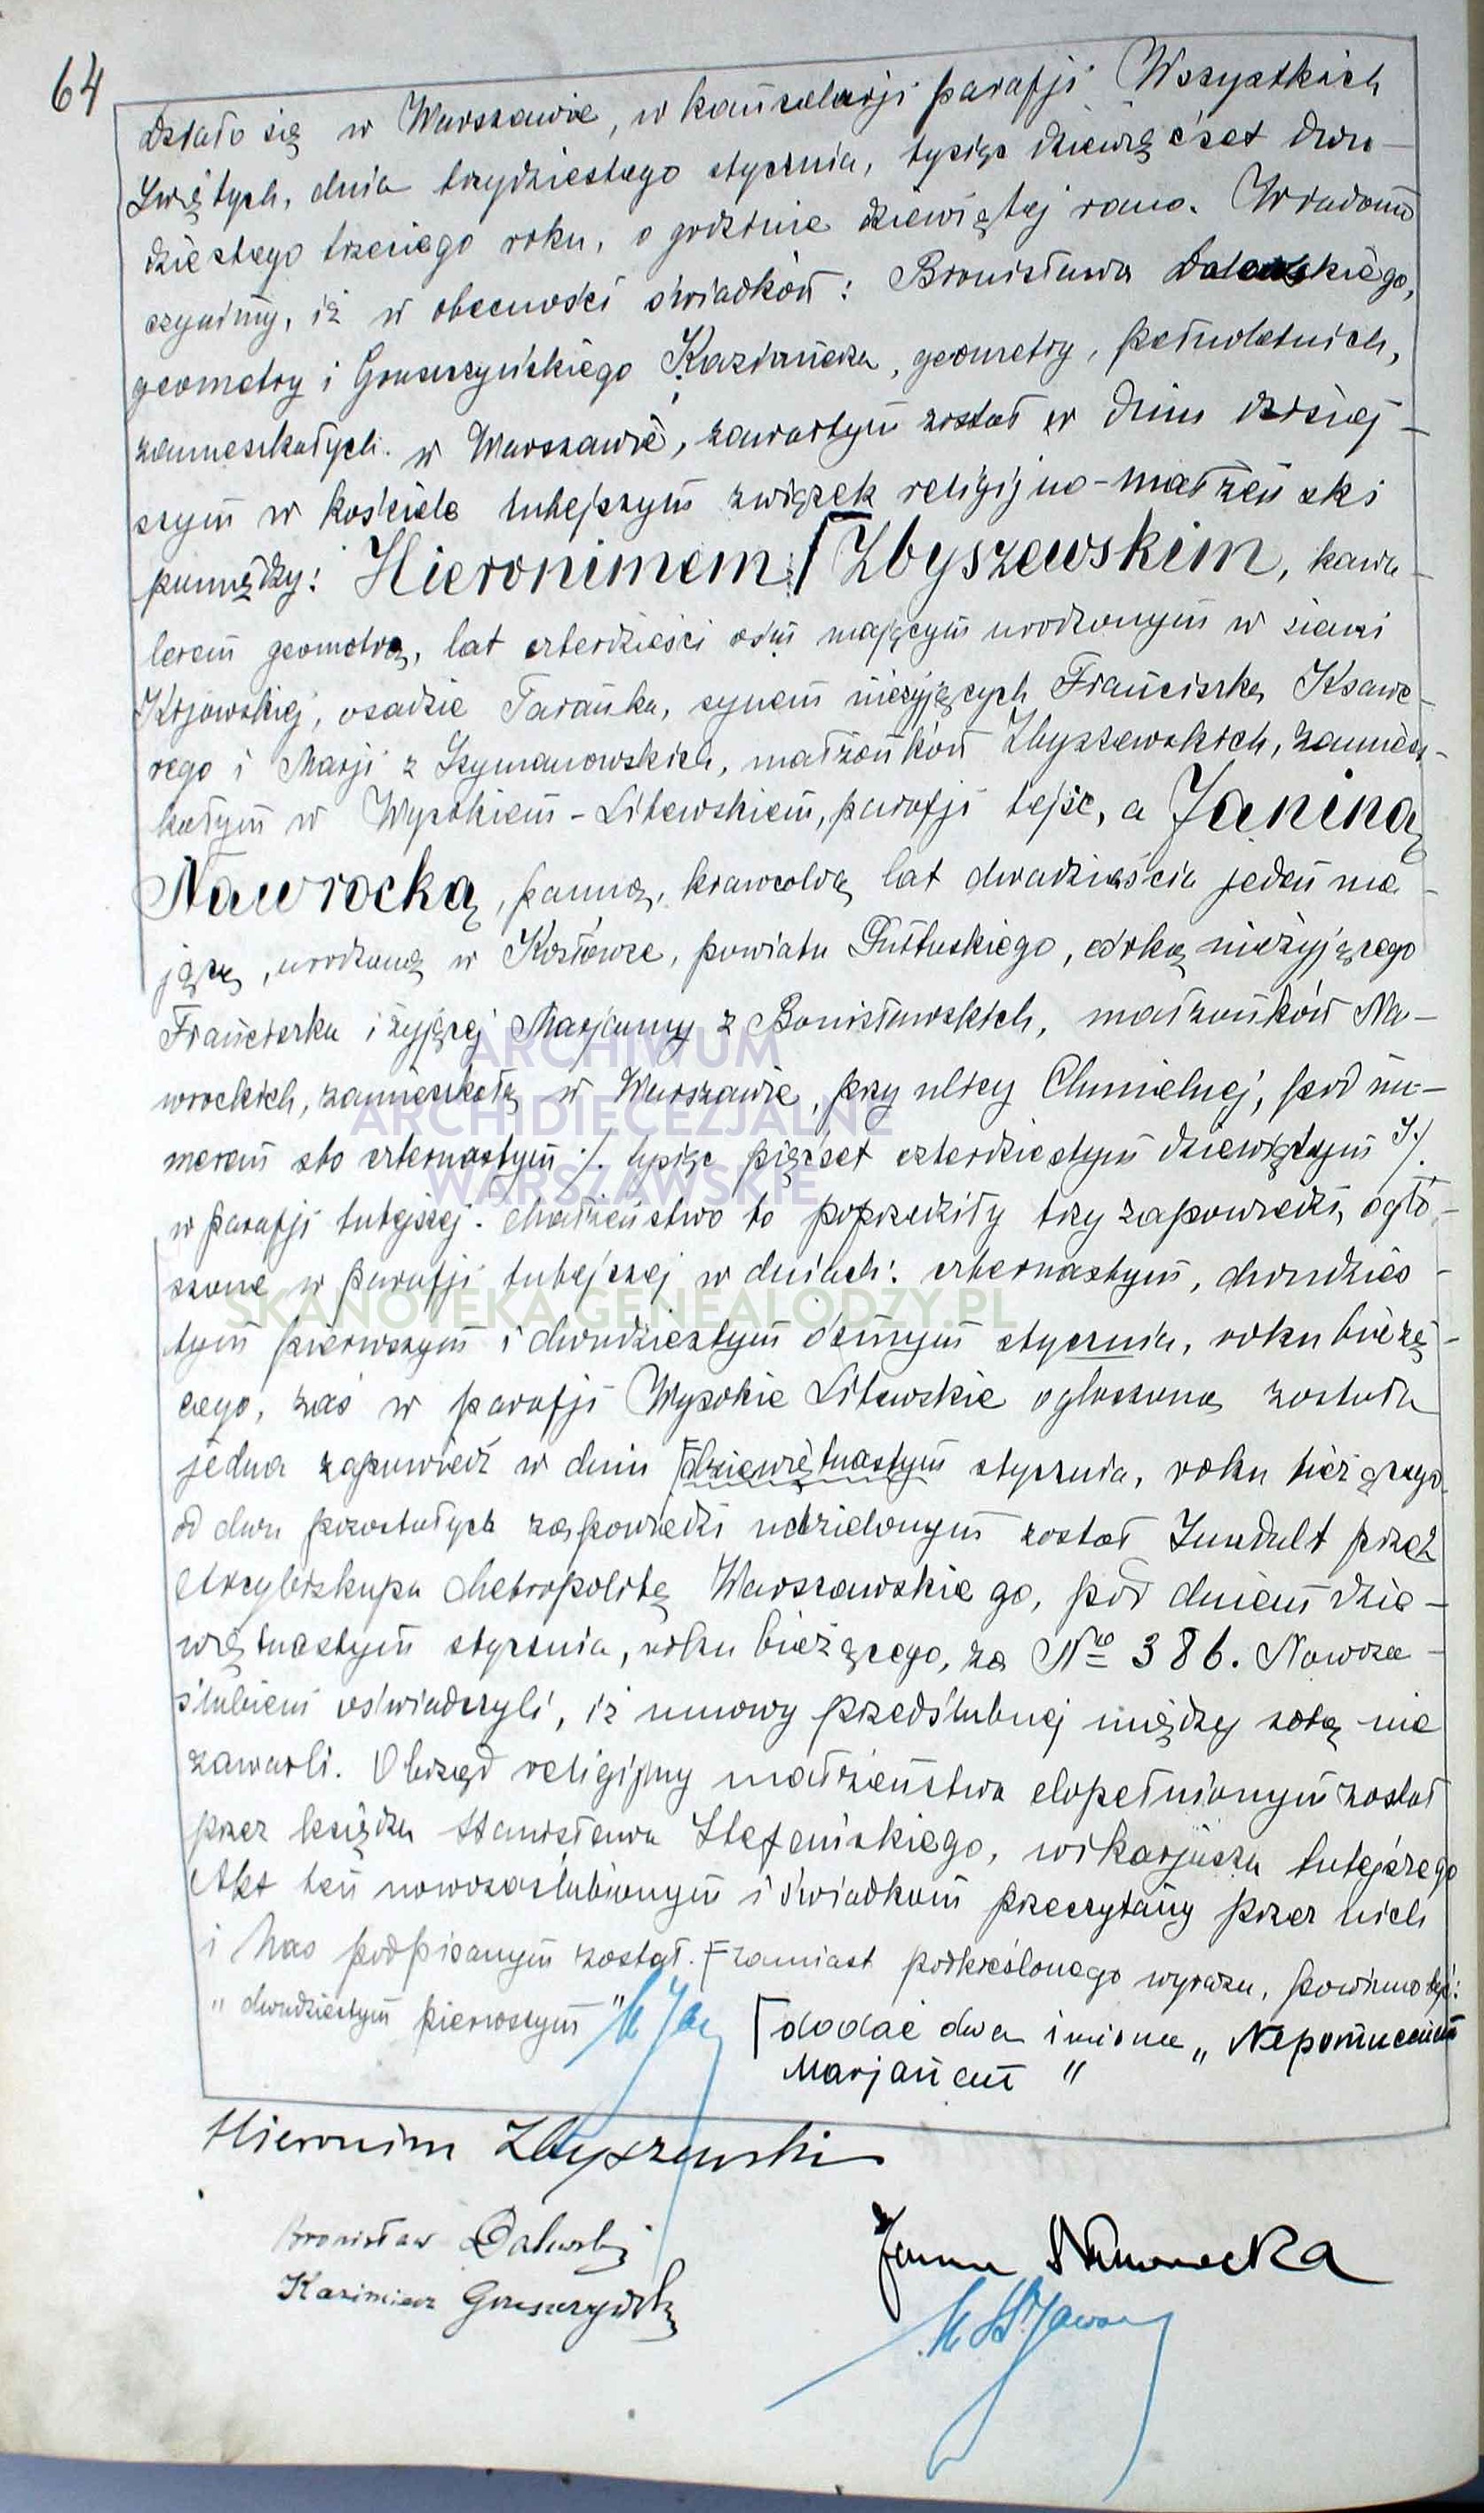 64
Działo się w Warszawie, w kancelarji parafji Wszystkich
Świętych, dnia trzydziestego stycznia, tysiąc dziewięćset dwu-
dziestego trzeciego roku, o godzinie dziewiątej rano. Wiadomo
czynimy, iż w obecności świadków: Bronisława Dalewskiego,
geometry i Gruszczyńskiego Kazimierza, geometry, pełnoletnich,
zamieszkałych w Warszawie, zawartym został w dniu dzisiej-
szym w kościele tutejszym związek religijno-małżeński
pomiędzy: Hieronimem Zbyszewskim, kawa-
lerem geometrą, lat czterdzieści ośm mającym urodzonym w ziemi
Kijowskiej, osadzie Tarańka, synem nieżyjących Franciszka Ksawe-
rego i Marji z Szymanowskich, małżonków Zbyszewskich, zamiesz-
kałym w Wysokiem-Litewskiem, parafji tejże, a Janiną
Nawrocką, panną, krawcową lat dwadzieścia jeden ma-
jącą, urodzoną w Kozłowie, powiatu Pułtuskiego, córką nieżyjącego
Franciszka i żyjącej Marjanny z Bonisławskich, małżonków Na-
wrockich, zamieszkałą w Warszawie, przy ulicy Chmielnej, pod nu-
merem sto czternastym ./. tysiąc pięćset czterdziestym dziewiątym ./.
w parafji tutejszej. Małżeństwo to poprzedziły trzy zapowiedzi, ogło-
szone w parafji tutejszej w dniach: czternastym, dwudzies-
tym pierwszym i dwudziestym ósmym stycznia, roku bieżą-
cego, zaś w parafji Wysokie Litewskie ogłoszoną została
jedna zapowiedź w dniu dziewiętnastym stycznia, roku bieżącego
od dwu pozostałych zapowiedzi udzielonym został Indult przez
Arcybiskupa Metropolitę Warszawskiego, pod dniem dzie-
więtnastym stycznia, roku bieżącego, za No 386. Nowoza-
ślubieni oświadczyli, iż umowy przedślubnej między sobą nie
zawarli. Obrzęd religijny małżeństwa dopełnionym został
przez księdza Stanisława Stefańskiego, wikarjusza tutejszego
Akt ten nowozaślubionym i świadkom przeczytany przez nich
i Nas podpisanym został. zamiast podkreślonego wyrazu, powinno być:
"dwudziestym pierwszym"
dodać dwa imiona "Nepomucenem
Marjanem"
Hieronim Zbyszewski
Bronisław Dalewski
Janina Nawrocka
Kazimierz Gruszczyński
ARCHIWUM
ARCHIDIECEZJALNE
WARSZAWSKIE
SKANOTEKA.GENEALODZY.PL